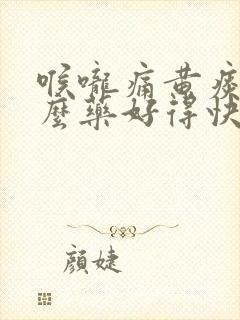 喉嚨痛黃痰
麼藥好得快
顏婕